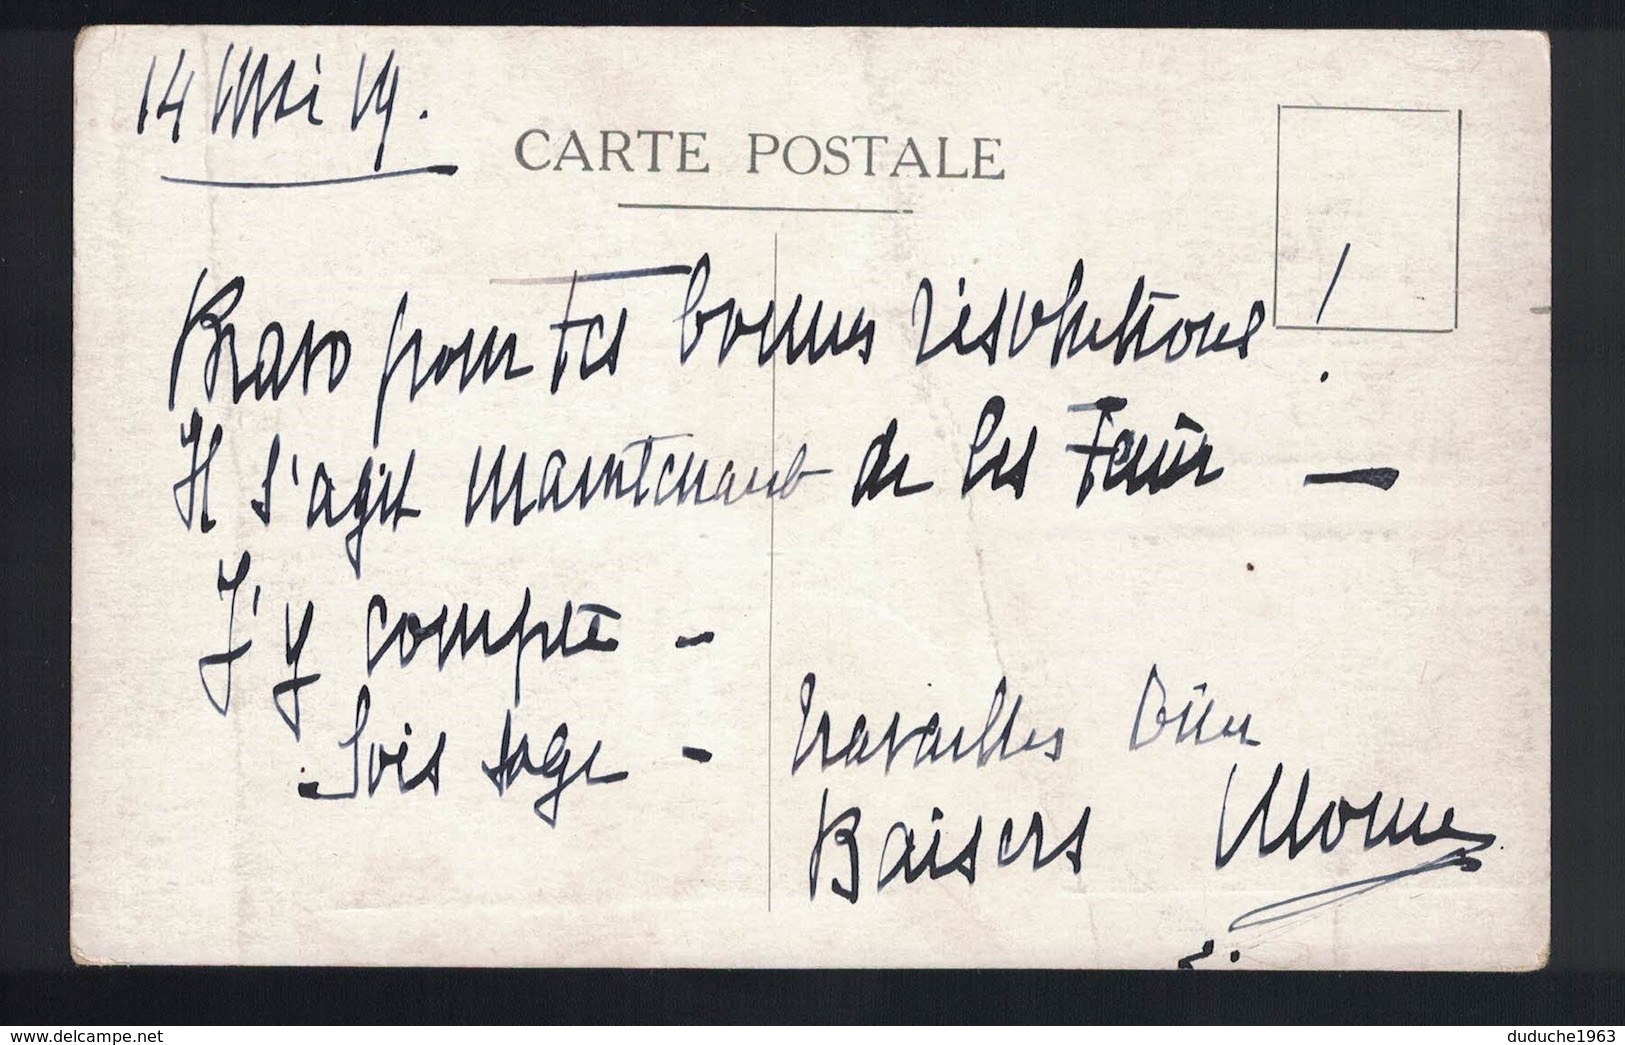 14 Mai 19.
CARTE POSTALE
Bravo pour tes bonnes résolutions !
Il s'agit maintenant de les tenir —
J'y compte -
Sois sage - travailles bien
Baisers
www.delcampe.net
duduche1963